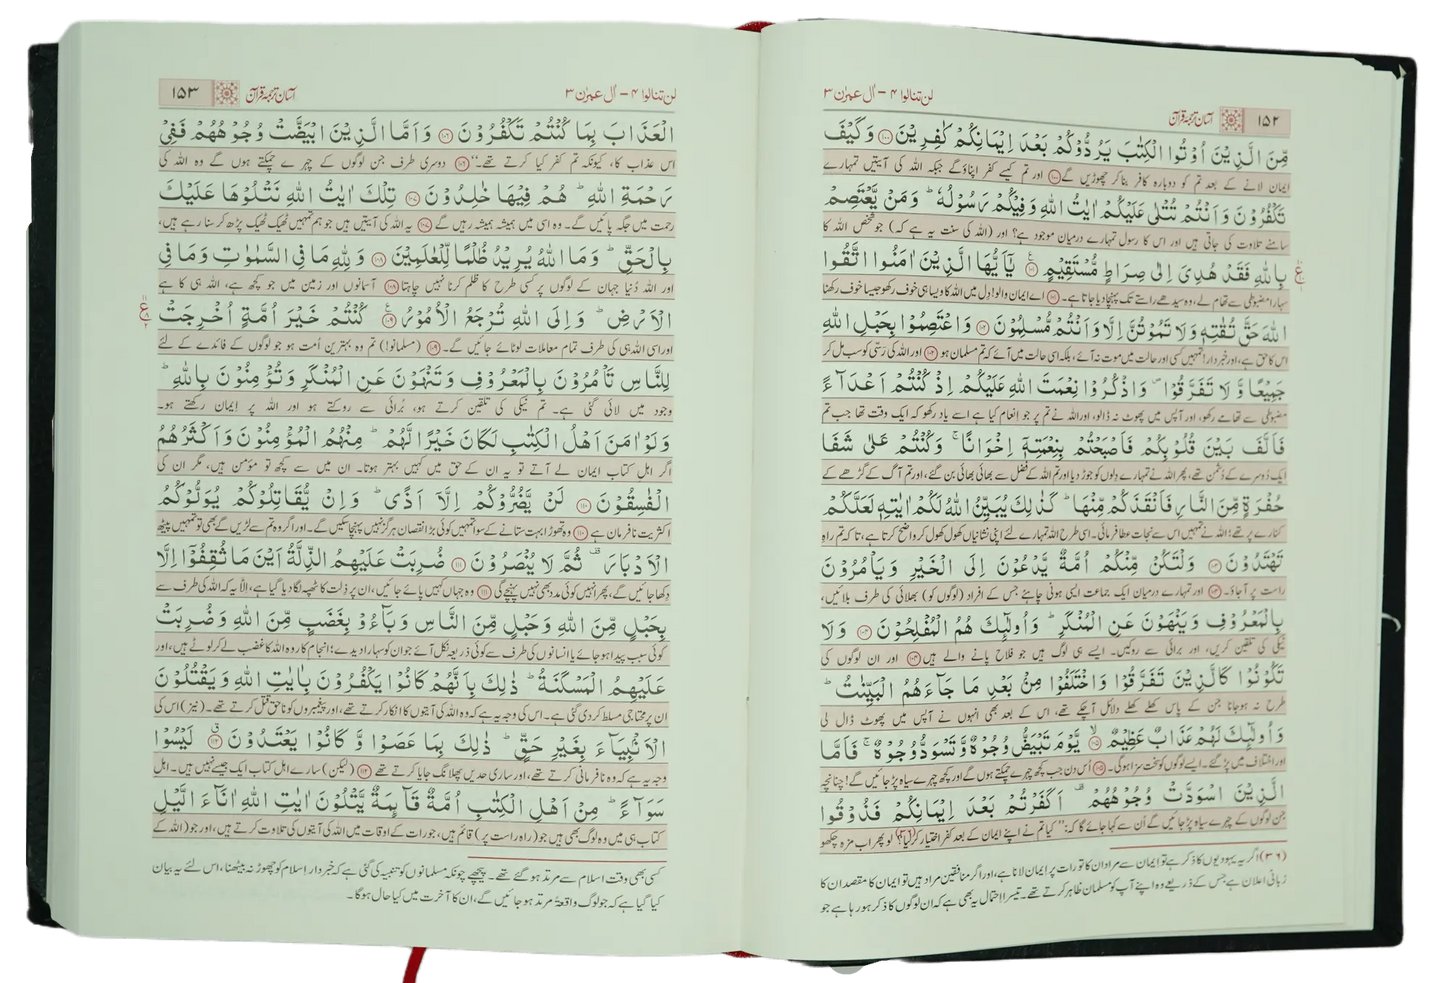 ۱۵۲ آسان ترجمۂ قرآن لن تنالوا ۴ – اٰل عمرٰن ۳
مِّنَ الَّذِيْنَ اُوْتُوا الْكِتٰبَ يَرُدُّوْكُمْ بَعْدَ اِيْمَانِكُمْ كٰفِرِيْنَ ۝۱۰۰ وَكَيْفَ
ایمان لانے کے بعد تم کو دوبارہ کافر بنا کر چھوڑیں گے ۝۱۰۰ اور تم کیسے کفر اپناؤ گے جبکہ اللہ کی آیتیں تمہارے
تَكْفُرُوْنَ وَاَنْتُمْ تُتْلٰى عَلَيْكُمْ اٰيٰتُ اللهِ وَفِيْكُمْ رَسُوْلُهٗ ؕ وَمَنْ يَّعْتَصِمْ
سامنے تلاوت کی جاتی ہیں اور اس کا رسول تمہارے درمیان موجود ہے؟ اور (اللہ کی سنت یہ ہے کہ) جو شخص اللہ کا
بِاللهِ فَقَدْ هُدِيَ اِلٰى صِرَاطٍ مُّسْتَقِيْمٍ ۝۱۰۱ يٰۤاَيُّهَا الَّذِيْنَ اٰمَنُوا اتَّقُوا
سہارا مضبوطی سے تھام لے، وہ سیدھے راستے تک پہنچا دیا جاتا ہے۔ ۝۱۰۱ اے ایمان والو! دل میں اللہ کا ویسا ہی خوف رکھو جیسا خوف رکھنا
اللهَ حَقَّ تُقٰتِهٖ وَلَا تَمُوْتُنَّ اِلَّا وَاَنْتُمْ مُّسْلِمُوْنَ ۝۱۰۲ وَاعْتَصِمُوْا بِحَبْلِ اللهِ
اس کا حق ہے، اور خبردار! تمہیں کسی اور حالت میں موت نہ آئے، بلکہ اسی حالت میں آئے کہ تم مسلمان ہو ۝۱۰۲ اور اللہ کی رسّی کو سب مل کر
جَمِيْعًا وَّلَا تَفَرَّقُوْا ۪ وَاذْكُرُوْا نِعْمَتَ اللهِ عَلَيْكُمْ اِذْ كُنْتُمْ اَعْدَآءً
مضبوطی سے تھامے رکھو، اور آپس میں پھوٹ نہ ڈالو، اور اللہ نے تم پر جو انعام کیا ہے اسے یاد رکھو کہ ایک وقت تھا جب تم
فَاَلَّفَ بَيْنَ قُلُوْبِكُمْ فَاَصْبَحْتُمْ بِنِعْمَتِهٖۤ اِخْوَانًا ۚ وَكُنْتُمْ عَلٰى شَفَا
ایک دُوسرے کے دُشمن تھے، پھر اللہ نے تمہارے دلوں کو جوڑ دیا اور تم اللہ کے فضل سے بھائی بھائی بن گئے، اور تم آگ کے گڑھے کے
حُفْرَةٍ مِّنَ النَّارِ فَاَنْقَذَكُمْ مِّنْهَا ؕ كَذٰلِكَ يُبَيِّنُ اللهُ لَكُمْ اٰيٰتِهٖ لَعَلَّكُمْ
کنارے پر تھے؛ اللہ نے تمہیں اس سے نجات عطا فرمائی۔ اسی طرح اللہ تمہارے لئے اپنی نشانیاں کھول کھول کر واضح کرتا ہے، تاکہ تم راہِ
تَهْتَدُوْنَ ۝۱۰۳ وَلْتَكُنْ مِّنْكُمْ اُمَّةٌ يَّدْعُوْنَ اِلَى الْخَيْرِ وَيَاْمُرُوْنَ
راست پر آجاؤ۔ ۝۱۰۳ اور تمہارے درمیان ایک جماعت ایسی ہونی چاہئے جس کے افراد (لوگوں کو) بھلائی کی طرف بلائیں،
بِالْمَعْرُوْفِ وَيَنْهَوْنَ عَنِ الْمُنْكَرِ ؕ وَاُولٰٓئِكَ هُمُ الْمُفْلِحُوْنَ ۝۱۰۴ وَلَا
نیکی کی تلقین کریں، اور برائی سے روکیں۔ ایسے ہی لوگ ہیں جو فلاح پانے والے ہیں ۝۱۰۴ اور ان لوگوں کی
تَكُوْنُوْا كَالَّذِيْنَ تَفَرَّقُوْا وَاخْتَلَفُوْا مِنْۢ بَعْدِ مَا جَآءَهُمُ الْبَيِّنٰتُ ؕ
طرح نہ ہوجانا جن کے پاس کھلے کھلے دلائل آچکے تھے، اس کے بعد بھی انہوں نے آپس میں پھوٹ ڈال لی
وَاُولٰٓئِكَ لَهُمْ عَذَابٌ عَظِيْمٌ ۝۱۰۵ يَّوْمَ تَبْيَضُّ وُجُوْهٌ وَّتَسْوَدُّ وُجُوْهٌ ۚ فَاَمَّا
اور اختلاف میں پڑ گئے۔ ایسے لوگوں کو سخت سزا ہوگی۔ ۝۱۰۵ اُس دن جب کچھ چہرے چمکتے ہوں گے اور کچھ چہرے سیاہ پڑ جائیں گے! چنانچہ
الَّذِيْنَ اسْوَدَّتْ وُجُوْهُهُمْ ۫ اَكَفَرْتُمْ بَعْدَ اِيْمَانِكُمْ فَذُوْقُوا
جن لوگوں کے چہرے سیاہ پڑ جائیں گے اُن سے کہا جائے گا کہ: "کیا تم نے اپنے ایمان کے بعد کفر اختیار کر لیا؟ لو پھر اب مزہ چکھو
(۳۶) اگر یہ یہودیوں کا ذکر ہے تو ایمان سے مراد ان کا تورات پر ایمان لانا ہے، اور اگر منافقین مراد ہیں تو ایمان کا مقصد ان کا
زبانی اعلان ہے جس کے ذریعے وہ اپنے آپ کو مسلمان ظاہر کرتے تھے۔ تیسرا احتمال یہ بھی ہے کہ ان لوگوں کا ذکر ہو رہا ہے جو
۱۵۳ آسان ترجمۂ قرآن لن تنالوا ۴ – اٰل عمرٰن ۳
الْعَذَابَ بِمَا كُنْتُمْ تَكْفُرُوْنَ ۝۱۰۶ وَاَمَّا الَّذِيْنَ ابْيَضَّتْ وُجُوْهُهُمْ فَفِيْ
اس عذاب کا، کیونکہ تم کفر کیا کرتے تھے۔" ۝۱۰۶ دوسری طرف جن لوگوں کے چہرے چمکتے ہوں گے وہ اللہ کی
رَحْمَةِ اللهِ ؕ هُمْ فِيْهَا خٰلِدُوْنَ ۝۱۰۷ تِلْكَ اٰيٰتُ اللهِ نَتْلُوْهَا عَلَيْكَ
رحمت میں جگہ پائیں گے۔ وہ اسی میں ہمیشہ ہمیشہ رہیں گے ۝۱۰۷ یہ اللہ کی آیتیں ہیں جو ہم تمہیں ٹھیک ٹھیک پڑھ کر سنا رہے ہیں،
بِالْحَقِّ ؕ وَمَا اللهُ يُرِيْدُ ظُلْمًا لِّلْعٰلَمِيْنَ ۝۱۰۸ وَلِلّٰهِ مَا فِي السَّمٰوٰتِ وَمَا فِي
اور اللہ دُنیا جہان کے لوگوں پر کسی طرح کا ظلم کرنا نہیں چاہتا ۝۱۰۸ آسمانوں اور زمین میں جو کچھ ہے، اللہ ہی کا ہے
الْاَرْضِ ؕ وَاِلَى اللهِ تُرْجَعُ الْاُمُوْرُ ۝۱۰۹ كُنْتُمْ خَيْرَ اُمَّةٍ اُخْرِجَتْ
اور اسی اللہ ہی کی طرف تمام معاملات لوٹائے جائیں گے۔ ۝۱۰۹ (مسلمانو!) تم وہ بہترین اُمت ہو جو لوگوں کے فائدے کے لئے
لِلنَّاسِ تَاْمُرُوْنَ بِالْمَعْرُوْفِ وَتَنْهَوْنَ عَنِ الْمُنْكَرِ وَتُؤْمِنُوْنَ بِاللهِ ؕ
وجود میں لائی گئی ہے۔ تم نیکی کی تلقین کرتے ہو، بُرائی سے روکتے ہو اور اللہ پر ایمان رکھتے ہو۔
وَلَوْ اٰمَنَ اَهْلُ الْكِتٰبِ لَكَانَ خَيْرًا لَّهُمْ ؕ مِنْهُمُ الْمُؤْمِنُوْنَ وَاَكْثَرُهُمُ
اگر اہل کتاب ایمان لے آتے تو یہ ان کے حق میں کہیں بہتر ہوتا۔ ان میں سے کچھ تو مؤمن ہیں، مگر ان کی
الْفٰسِقُوْنَ ۝۱۱۰ لَنْ يَّضُرُّوْكُمْ اِلَّاۤ اَذًى ؕ وَاِنْ يُّقَاتِلُوْكُمْ يُوَلُّوْكُمُ
اکثریت نافرمان ہے ۝۱۱۰ وہ تھوڑا بہت ستانے کے سوا تمہیں کوئی بڑا نقصان ہرگز نہیں پہنچا سکیں گے۔ اور اگر وہ تم سے لڑیں گے بھی تو تمہیں پیٹھ
الْاَدْبَارَ ۫ ثُمَّ لَا يُنْصَرُوْنَ ۝۱۱۱ ضُرِبَتْ عَلَيْهِمُ الذِّلَّةُ اَيْنَ مَا ثُقِفُوْۤا اِلَّا
دکھا جائیں گے، پھر انہیں کوئی مدد بھی نہیں پہنچے گی ۝۱۱۱ وہ جہاں کہیں پائے جائیں، ان پر ذلت کا ٹھپہ لگا دیا گیا ہے، الّا یہ کہ اللہ کی طرف سے
بِحَبْلٍ مِّنَ اللهِ وَحَبْلٍ مِّنَ النَّاسِ وَبَآءُوْ بِغَضَبٍ مِّنَ اللهِ وَضُرِبَتْ
کوئی سبب پیدا ہو جائے یا انسانوں کی طرف سے کوئی ذریعہ نکل آئے جو ان کو سہارا دیدے؛ انجام کار وہ اللہ کا غضب لے کر لوٹے ہیں، اور
عَلَيْهِمُ الْمَسْكَنَةُ ؕ ذٰلِكَ بِاَنَّهُمْ كَانُوْا يَكْفُرُوْنَ بِاٰيٰتِ اللهِ وَيَقْتُلُوْنَ
ان پر محتاجی مسلط کر دی گئی ہے۔ اس کی وجہ یہ ہے کہ وہ اللہ کی آیتوں کا انکار کرتے تھے، اور پیغمبروں کو ناحق قتل کرتے تھے۔ (نیز) اس کی
الْاَنْۢبِيَآءَ بِغَيْرِ حَقٍّ ؕ ذٰلِكَ بِمَا عَصَوْا وَّكَانُوْا يَعْتَدُوْنَ ۝۱۱۲ لَيْسُوْا
وجہ یہ ہے کہ وہ نافرمانی کرتے تھے، اور ساری حدیں پھلانگ جایا کرتے تھے ۝۱۱۲ (لیکن) سارے اہل کتاب ایک جیسے نہیں ہیں۔ اہل
سَوَآءً ؕ مِنْ اَهْلِ الْكِتٰبِ اُمَّةٌ قَآئِمَةٌ يَّتْلُوْنَ اٰيٰتِ اللهِ اٰنَآءَ الَّيْلِ
کتاب ہی میں وہ لوگ بھی ہیں جو (راہِ راست پر) قائم ہیں، جو رات کے اوقات میں اللہ کی آیتوں کی تلاوت کرتے ہیں، اور جو (اللہ کے
کسی بھی وقت اسلام سے مرتد ہو گئے تھے۔ پیچھے چونکہ مسلمانوں کو تنبیہ کی گئی ہے کہ خبردار اِسلام کو چھوڑ نہ بیٹھنا، اس لئے یہ بیان
کیا گیا ہے کہ جو لوگ واقعۃً مرتد ہو جائیں گے، ان کا آخرت میں کیا حال ہوگا۔